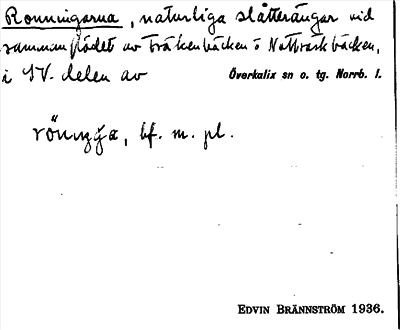 Ronningarna, naturliga slåtterängar vid
sammanflödet av Träkenbäcken o Nattvarkbäcken,
i SV. delen av Överkalix sn o. tg. Norrb. l.
röningga, bf. m. pl.
EDVIN BRÄNNSTRÖM 1936.